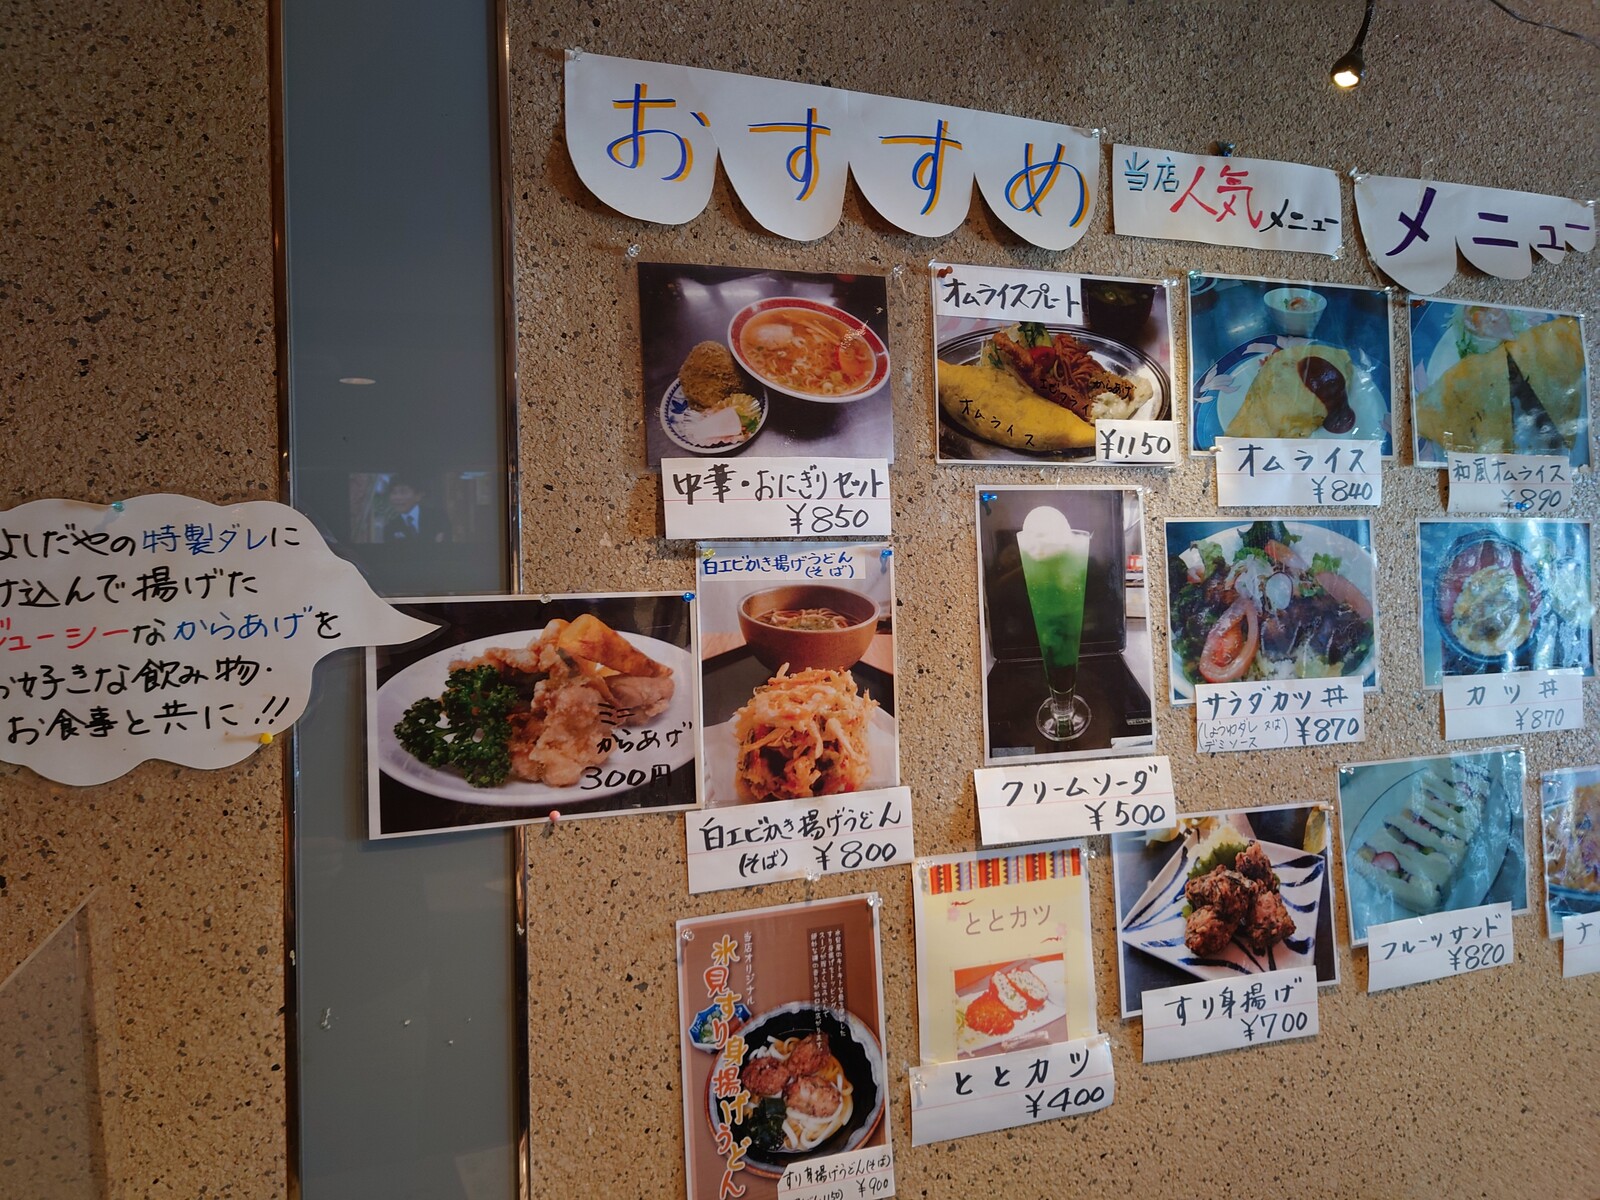 おすすめ
当店人気メニュー
メニュー
中華・おにぎりセット
¥850
オムライスプレート
オムライス
エビフライ
からあげ
¥1150
オムライス
¥840
和風オムライス
¥890
よしだやの特製ダレに
け込んで揚げた
ジューシーなからあげを
お好きな飲み物・
お食事と共に!!
ミニ
からあげ
300円
白エビかき揚げうどん
(そば)
白エビかき揚げうどん
(そば) ¥800
クリームソーダ
¥500
サラダカツ丼
(しょうゆダレ 又は
デミソース) ¥870
カツ丼
¥870
当店オリジナル
氷見すり身揚げうどん
すり身揚げうどん(そば)
¥900
ととカツ
ととカツ
¥400
すり身揚げ
¥700
フルーツサンド
¥820
ナ